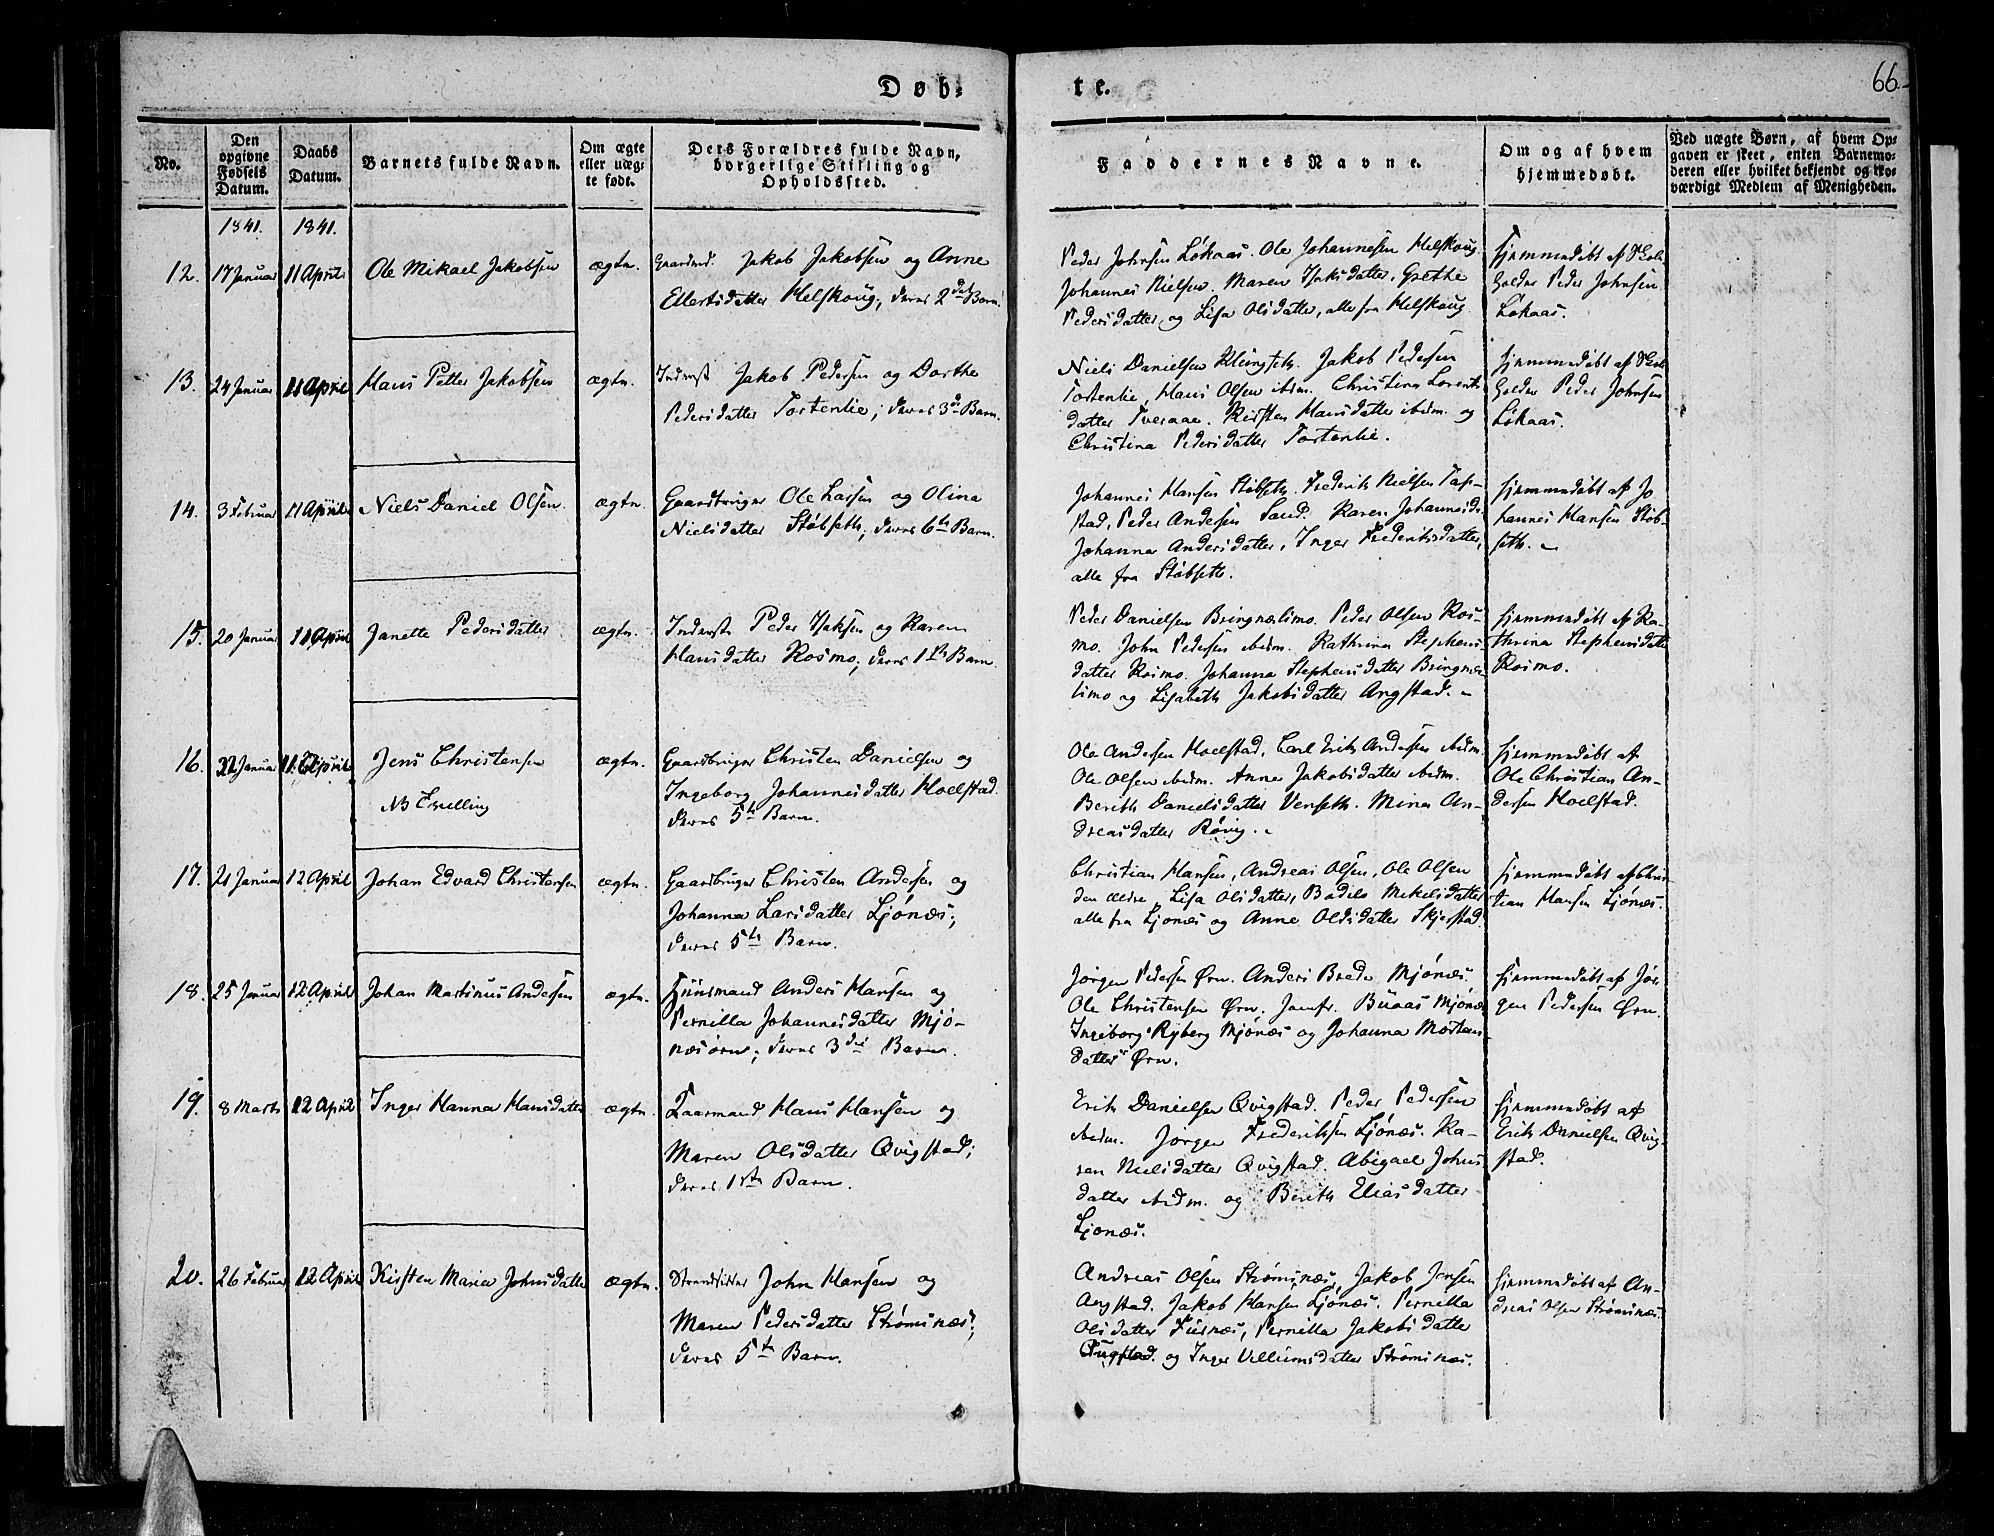 66.
Døb-
te.
No.
Den
opgivne
Fødsels
Datum.
Daabs
Datum.
Barnets fulde Navn.
Om ægte
eller uæg-
te født.
Dets Forældres fulde Navn,
borgerlige Stilling og
Opholdssted.
Faddernes Navne.
Om og af hvem
hjemmedøbt.
Ved uægte Børn, af hvem Op-
gaven er skeet, enten Barnemo-
deren eller hvilket bekjendt og tro-
værdigt Medlem af Menigheden.
1841.
1841.
12.
17 Januar
11 April
Ole Mikael Jakobsen
ægte.
Gaardmd. Jakob Jakobsen og Anne
Ellertsdatter Helskoug, deres 2det Barn.
Peder Johnsen Løkaas. Ole Johannesen Helskoug
Johannes Nielsen. Maren Isaksdatter, Grethe
Pedersdatter, og Lisa Olsdatter, alle fra Helskoug
hjemmedøbt af Skole
holder Peder Johnsen
Løkaas.
13.
24 Januar
11 April
Hans Petter Jakobsen
ægte.
Inderst Jakob Pedersen og Dorthe
Pedersdatter Tortenlie; deres 3de Barn.
Niels Danielsen Klungseth. Jakob Pedersen
Tortenlie, Hans Olsen ibidm. Christina Lorents
datter Tveraae. Kirsten Hansdatter ibidm. og
Christina Pedersdatter Tortenlie.
hjemmedøbt af Skole
holder Peder Johnsen
Løkaas.
14.
3 Februar
11 April
Niels Daniel Olsen.
ægte.
Gaardbruger Ole Larsen og Olina
Nielsdatter Støbseth; deres 6te Barn.
Johannes Hansen Støbseth. Frederik Nielsen
stad, Peder Andersen Sand. Karen Johannesdr
Johanna Andersdatter, Inger Frederiksdatter,
alle fra Støbseth.
hjemmedøbt af Jo
hannes Hansen Støb-
seth.
15.
20 Januar
11 April
Janette Pedersdatter
ægte.
Inderst Peder Isaksen og Karen
Hansdatter Rosmo; deres 1ste Barn.
Peder Danielsen Bringnælimo. Peder Olsen Ros-
mo. John Pedersen ibidm. Kathrina Stephens-
datter Rosmo. Johanna Stephensdatter Bringnæ-
limo og Lisabeth Jakobsdatter Angstad.
hjemmedøbt af Ka-
thrina Stephensdatter
Rosmo.
16.
22 Januar
11 April
Jens Christensen
NB Tvilling
ægte.
Gaardbruger Christen Danielsen og
Ingeborg Johannesdatter Hoelstad.
deres 5te Barn.
Ole Andersen Hoelstad, Carl Erik Andersen ibidm.
Ole Olsen ibidm. Anna Jakobsdatter ibidm.
Berith Danielsdatter Venseth. Mina An-
dreasdatter Røvig.
hjemmedøbt af
Ole Christian An-
dersen Hoelstad.
17.
21 Januar
12 April
Johan Edvard Christensen
ægte.
Gaardbruger Christen Andersen og
Johanna Larsdatter Ljønæs;
deres 5te Barn.
Christian Hansen, Andreas Olsen, Ole Olsen
den ældre, Lisa Olsdatter, Bodele Mikelsdatter
alle fra Ljønæs og Anne Oldsdatter Skjerstad
hjemmedøbt af Chris-
tian Hansen Ljønæs.
18.
25 Januar
12 April
Johan Martinus Andersen
ægte.
Huusmand Anders Hansen og
Pernilla Johannesdatter Mjø-
næsørn; deres 3die Barn.
Jørgen Pedersen Ørn. Anders Brede Mjønæs.
Ole Christensen Ørn. Jomfr. Buaas Mjønæs
Ingeborg Ryberg Mjønæs og Johanna Mortens-
datter Ørn.
hjemmedøbt af Jør-
gen Pedersen Ørn.
19.
8 Marts
12 April
Inger Hanna Hansdatter
ægte.
Kaarmand Hans Hansen og
Maren Olsdatter Qvigstad;
deres 1ste Barn.
Erik Danielsen Qvigstad. Peder Pedersen
ibidm. Jørgen Frederiksen Ljønæs. Ka-
ren Nielsdatter Qvigstad. Abigael Johns
datter ibidm. og Berith Eliasdatter
Ljonæs.
hjemmedøbt af
Erik Danielsen Qvig-
stad.
20.
26 Februar
12 April
Kirsten Maria Johnsdatter
ægte.
Strandsitter John Hansen og
Maren Pedersdatter Strømsnæs;
deres 5te Barn.
Andreas Olsen Strømsnæs, Jakob Jensen
Angstad. Jakob Hansen Ljønæs. Pernilla
Olsdatter Fuusnæs, Pernilla Jakobsdatter
og Inger Villumsdatter Strømsnæs.
hjemmedøbt af An-
dreas Olsen Strømsnæs.